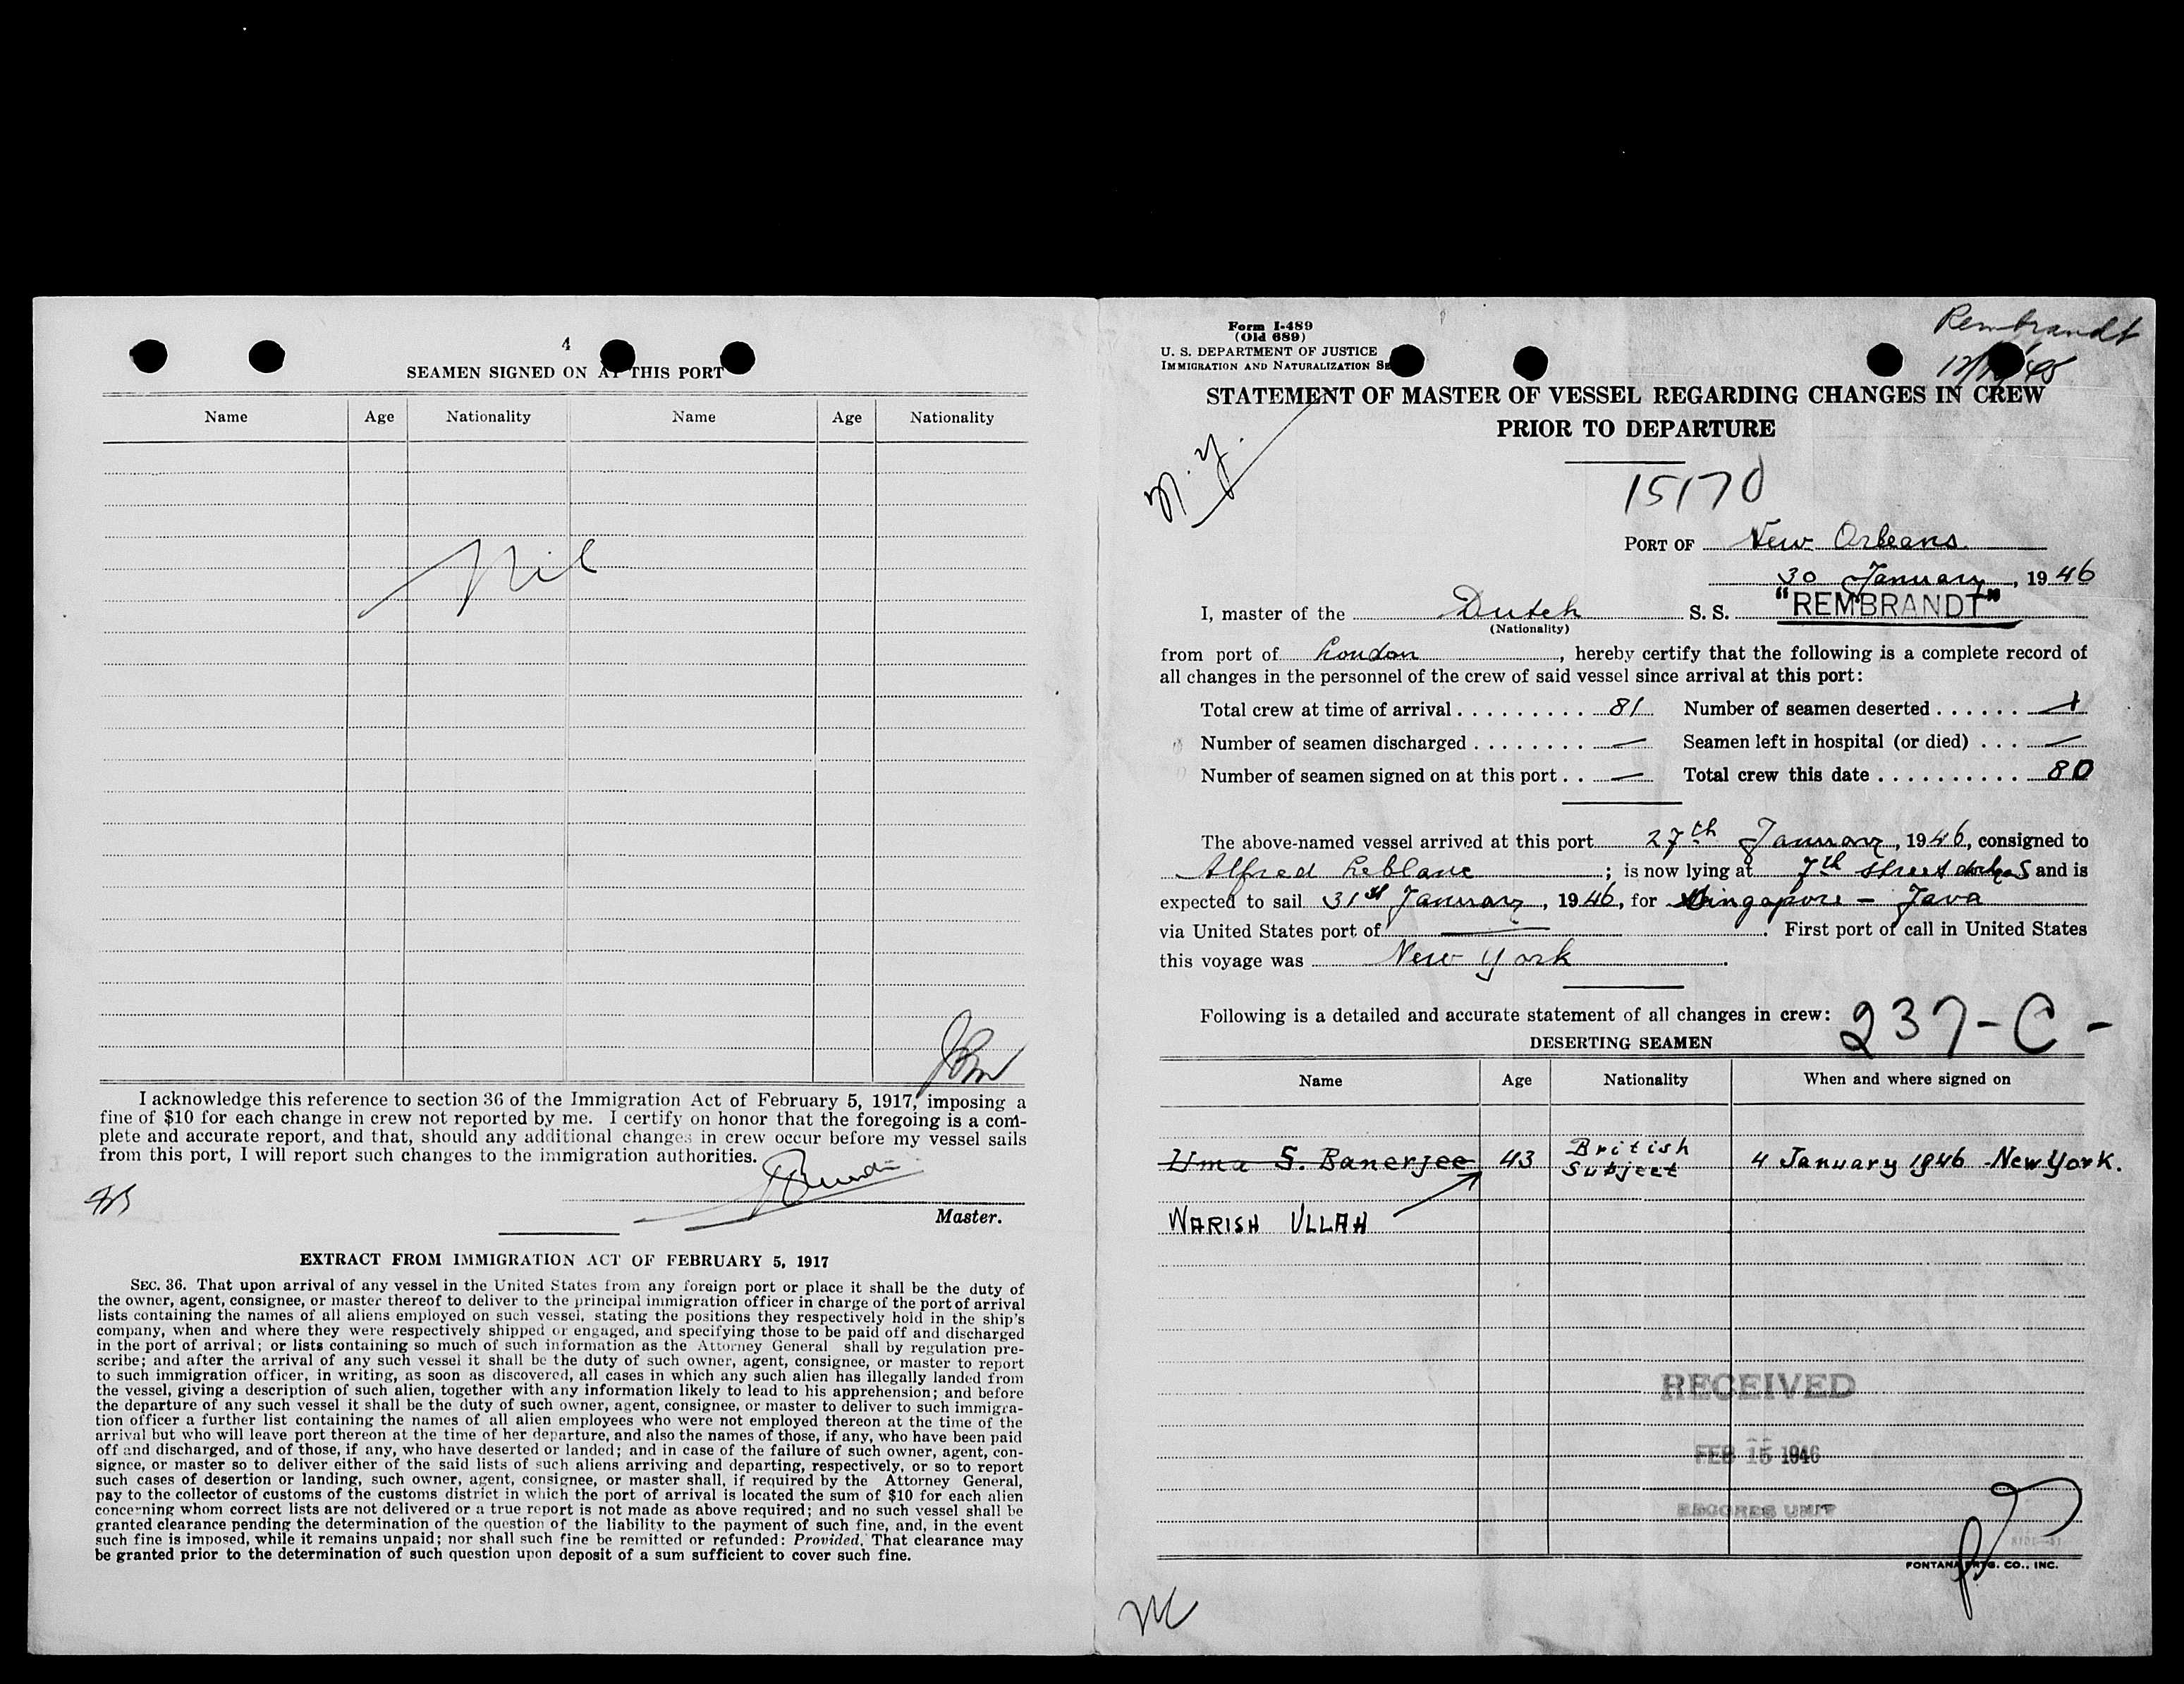 4
SEAMEN SIGNED ON AT THIS PORT
Name Age Nationality Name Age Nationality
Nil
I acknowledge this reference to section 36 of the Immigration Act of February 5, 1917, imposing a
fine of $10 for each change in crew not reported by me. I certify on honor that the foregoing is a com-
plete and accurate report, and that, should any additional changes in crew occur before my vessel sails
from this port, I will report such changes to the immigration authorities.
Master.
EXTRACT FROM IMMIGRATION ACT OF FEBRUARY 5, 1917
SEC. 36. That upon arrival of any vessel in the United States from any foreign port or place it shall be the duty of
the owner, agent, consignee, or master thereof to deliver to the principal immigration officer in charge of the port of arrival
lists containing the names of all aliens employed on such vessel, stating the positions they respectively hold in the ship's
company, when and where they were respectively shipped or engaged, and specifying those to be paid off and discharged
in the port of arrival; or lists containing so much of such information as the Attorney General shall by regulation pre-
scribe; and after the arrival of any such vessel it shall be the duty of such owner, agent, consignee, or master to report
to such immigration officer, in writing, as soon as discovered, all cases in which any such alien has illegally landed from
the vessel, giving a description of such alien, together with any information likely to lead to his apprehension; and before
the departure of any such vessel it shall be the duty of such owner, agent, consignee, or master to deliver to such immigra-
tion officer a further list containing the names of all alien employees who were not employed thereon at the time of the
arrival but who will leave port thereon at the time of her departure, and also the names of those, if any, who have been paid
off and discharged, and of those, if any, who have deserted or landed; and in case of the failure of such owner, agent, con-
signee, or master so to deliver either of the said lists of such aliens arriving and departing, respectively, or so to report
such cases of desertion or landing, such owner, agent, consignee, or master shall, if required by the Attorney General,
pay to the collector of customs of the customs district in which the port of arrival is located the sum of $10 for each alien
concerning whom correct lists are not delivered or a true report is not made as above required; and no such vessel shall be
granted clearance pending the determination of the question of the liability to the payment of such fine, and, in the event
such fine is imposed, while it remains unpaid; nor shall such fine be remitted or refunded: Provided, That clearance may
be granted prior to the determination of such question upon deposit of a sum sufficient to cover such fine.
Rembrandt
Form I-489
(Old 689)
U. S. DEPARTMENT OF JUSTICE
IMMIGRATION AND NATURALIZATION SE
STATEMENT OF MASTER OF VESSEL REGARDING CHANGES IN CREW
PRIOR TO DEPARTURE
N.Y.
15170
PORT OF New Orleans
30 January, 1946
I, master of the Dutch S. S. "REMBRANDT"
(Nationality)
from port of London, hereby certify that the following is a complete record of
all changes in the personnel of the crew of said vessel since arrival at this port:
Total crew at time of arrival 81 Number of seamen deserted 1
Number of seamen discharged — Seamen left in hospital (or died) —
Number of seamen signed on at this port — Total crew this date 80
The above-named vessel arrived at this port 27th January, 1946, consigned to
Alfred Leblanc; is now lying at 7th street and is
expected to sail 31st January, 1946, for Singapore - Java
via United States port of —. First port of call in United States
this voyage was New York.
Following is a detailed and accurate statement of all changes in crew: 237-C-
DESERTING SEAMEN
Name Age Nationality When and where signed on
Uma S. Banerjee 43 British Subject 4 January 1946 - New York.
WARISH ULLAH
RECEIVED
FEB 15 1946
RECORDS UNIT
FONTANA PRTG. CO., INC.